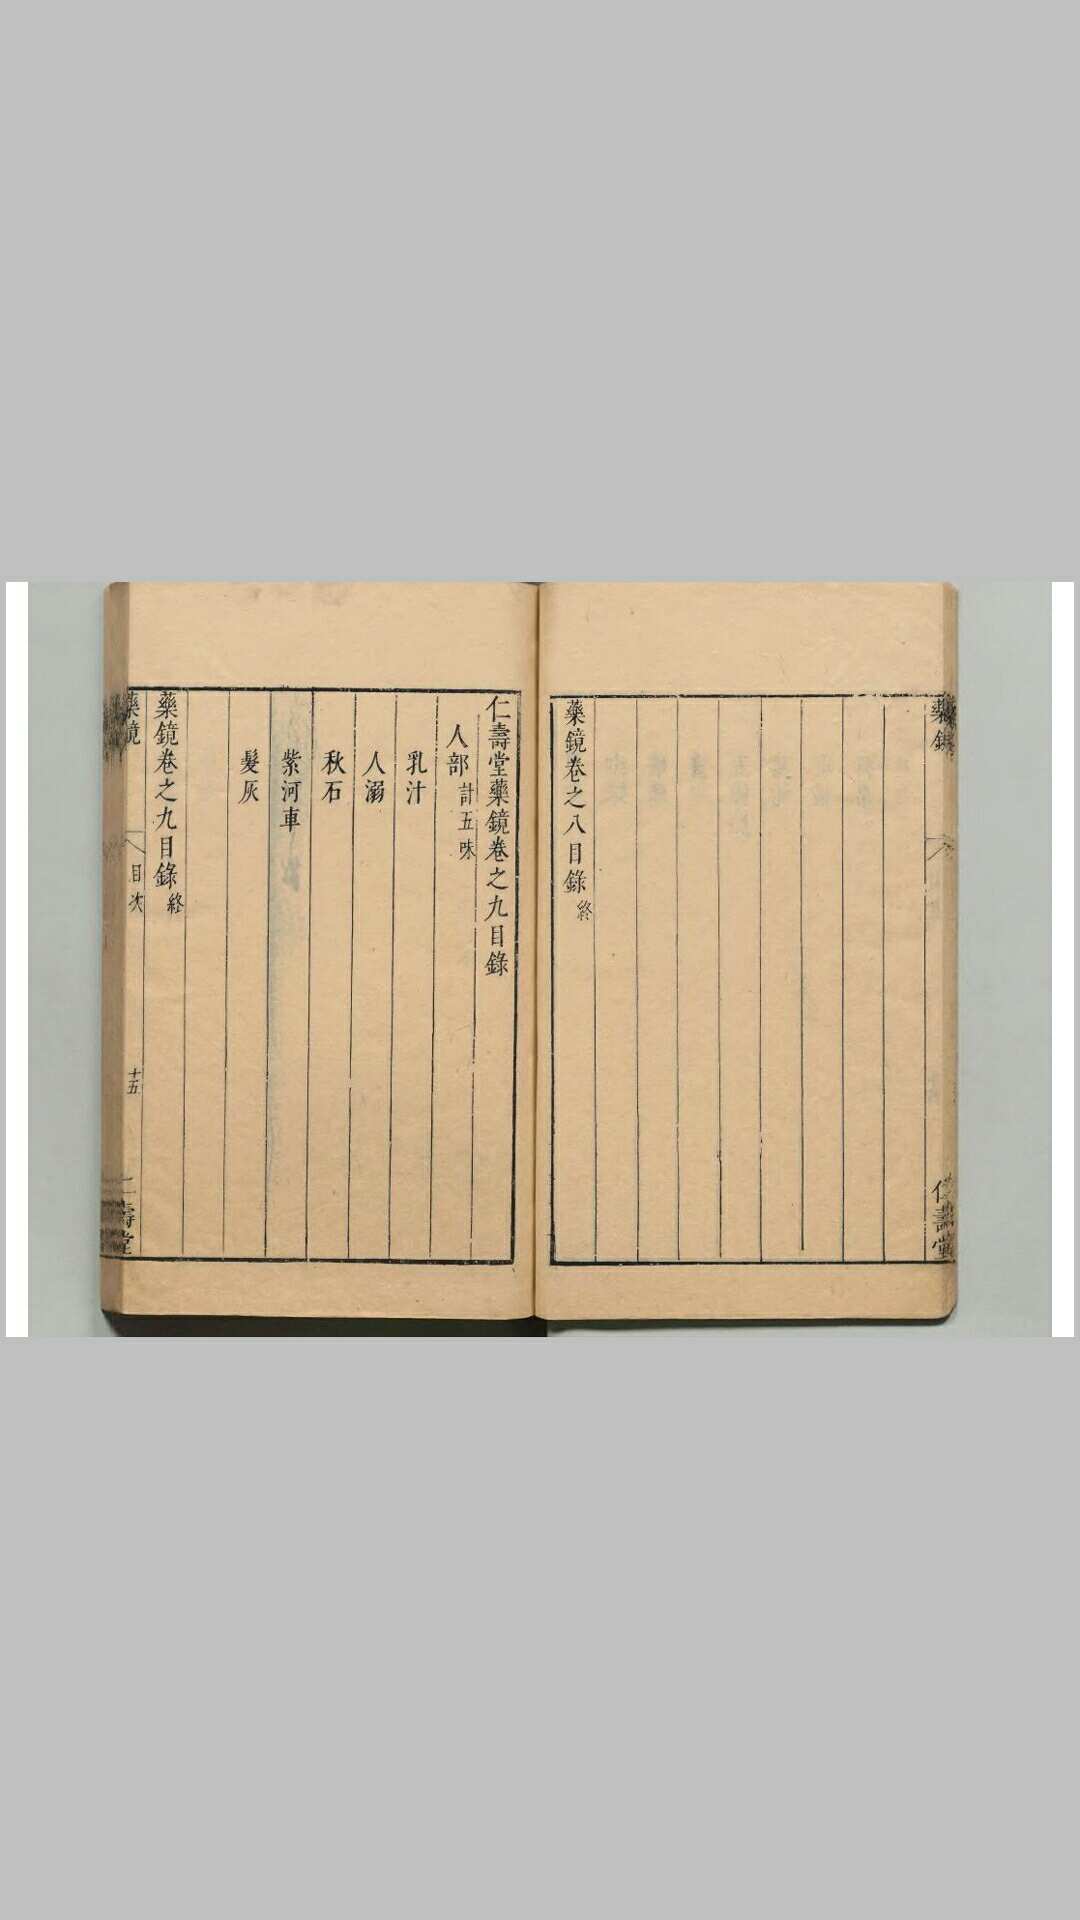 藥鏡
仁壽堂
藥鏡卷之八目錄終
仁壽堂藥鏡卷之九目錄
人部計五味
乳汁
人溺
秋石
紫河車
髮灰
藥鏡卷之九目錄終
藥鏡
目次
十五
仁壽堂